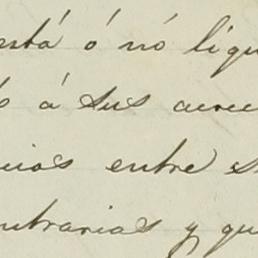 está ó nó liqu
ó á sus acree
uios entre s
ntrarias y qu